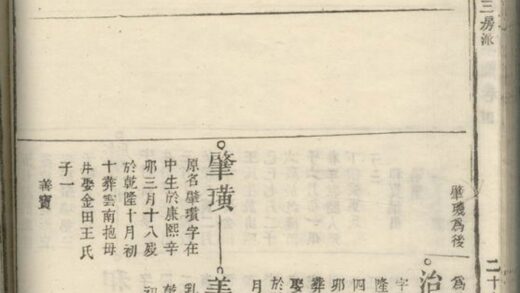 三房派
二十
肇璣為後
為
治
字
隆
四
卯
葬
娶
於
月
肇璜
美
原名肇瓚字在
中生於康熙辛
卯三月十八歿
於乾隆十月初
十葬雲南抱母
井娶金田王氏
子一
善寶